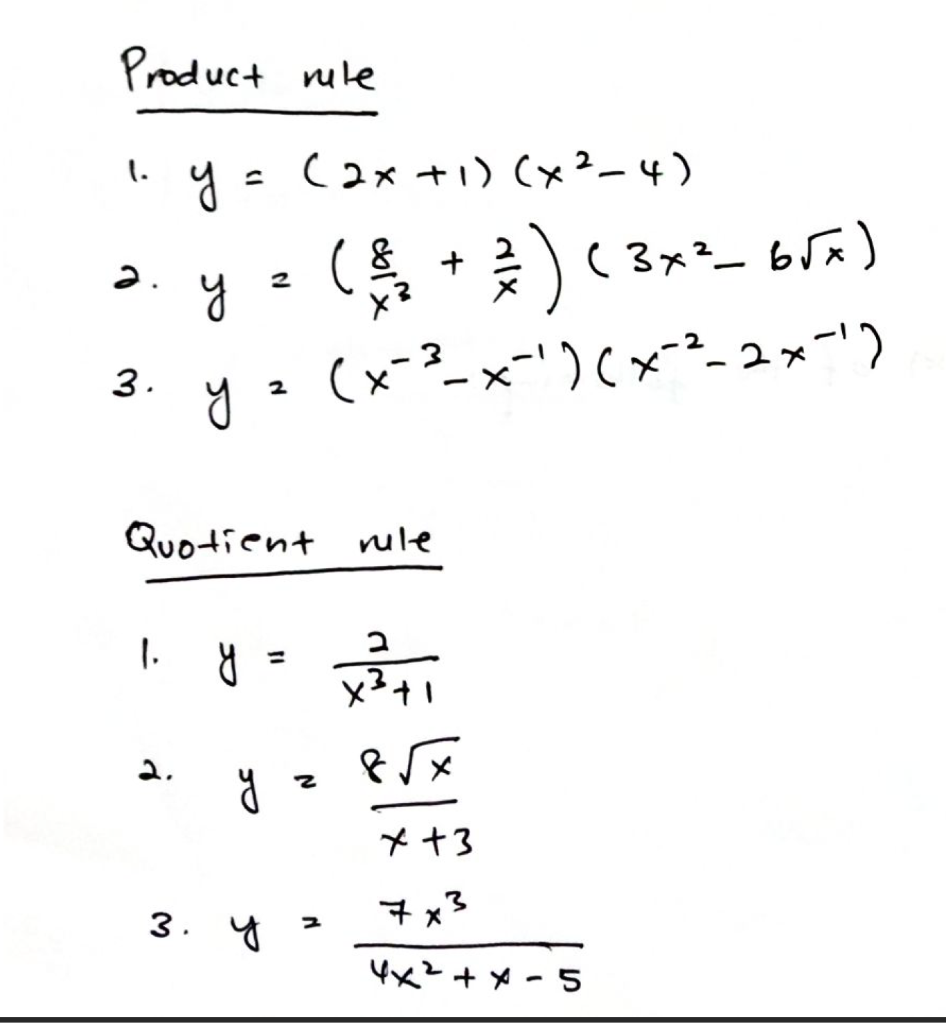 Product rule
1. y = (2x + 1) (x² - 4)
2. y = (8/x³ + 2/x) (3x² - 6√x)
3. y = (x⁻³ - x⁻¹) (x⁻² - 2x⁻¹)
Quotient rule
1. y = 2/(x³ + 1)
2. y = 8√x/(x + 3)
3. y = 7x³/(4x² + x - 5)